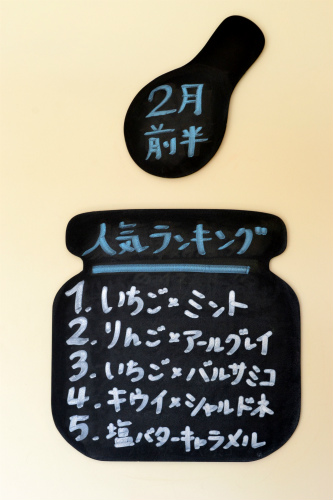 2月
前半
人気ランキング
1. いちご×ミント
2. りんご×アールグレイ
3. いちご×バルサミコ
4. キウイ×シャルドネ
5. 塩バターキャラメル